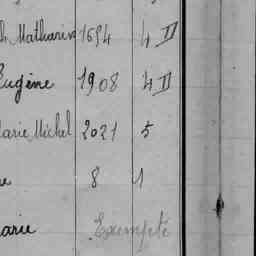 h Mathurin 1694 4 D
Eugène 1908 4 D
Marie Michel 2021 5
e 8 1
arie Exempté